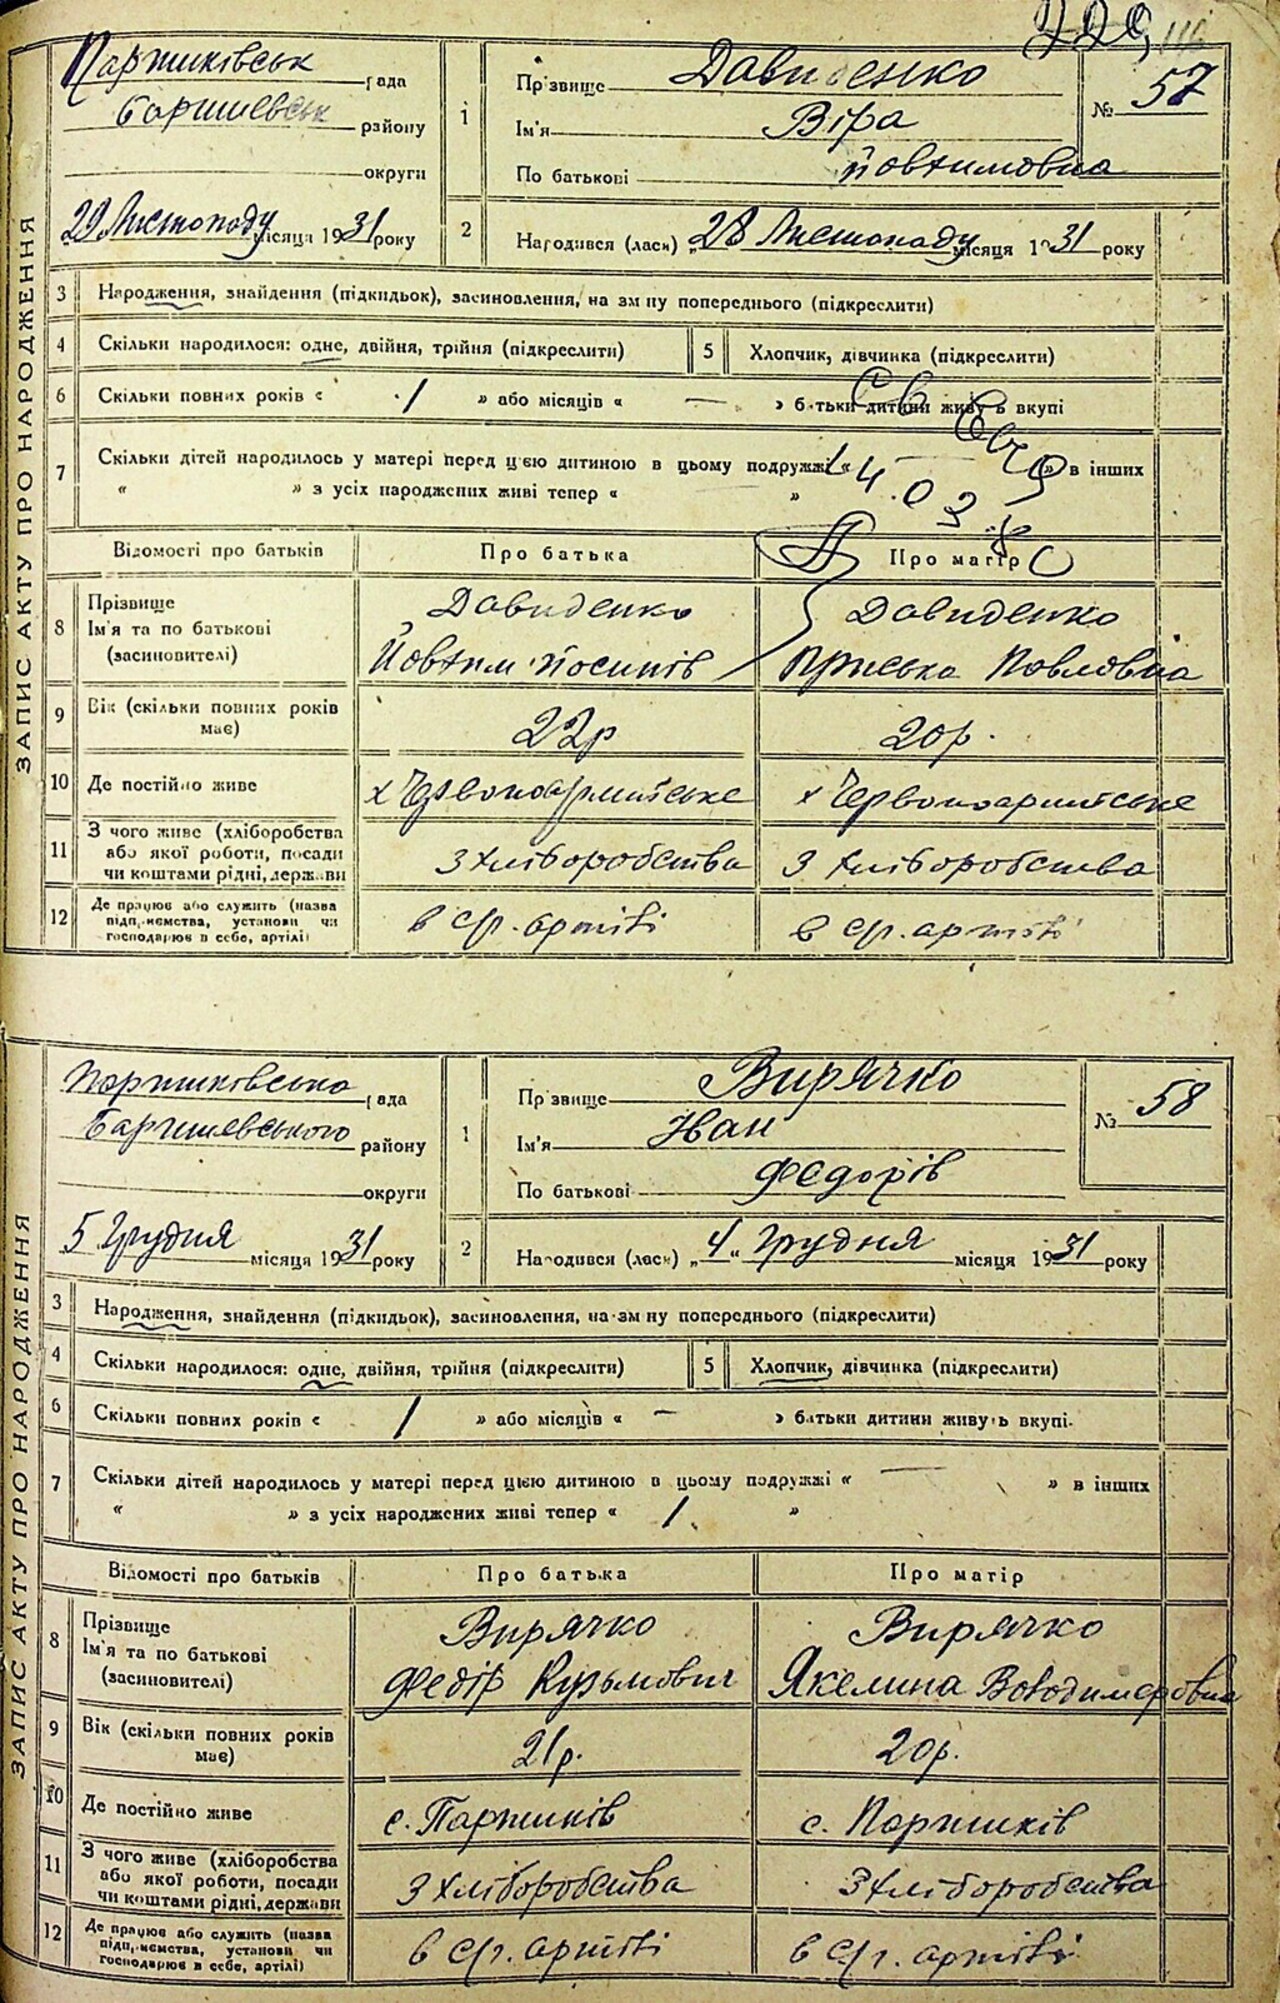 116
Паришківськ рада
Баришевськ району
округи
29 Листопаду місяця 1931 року
ЗАПИС АКТУ ПРО НАРОДЖЕННЯ
1 Прізвище Давиденко
№ 57
Ім'я Віра
По батькові Йовтимовна
2 Народився (лася) „28 Листопаду місяця 1931 року
3 Народження, знайдення (підкидьок), засиновлення, на зміну попереднього (підкреслити)
4 Скільки народилося: одне, двійня, трійня (підкреслити)
5 Хлопчик, дівчинка (підкреслити)
6 Скільки повних років « 1 » або місяців « — » батьки дитини живуть вкупі
7 Скільки дітей народилось у матері перед цією дитиною в цьому подружжі « — » в інших
« » з усіх народжених живі тепер « — »
Відомості про батьків Про батька Про матір
8 Прізвище Ім'я та по батькові (засиновителі)
Давиденко Йовтим Йосипів
Давиденко Приська Павловна
9 Вік (скільки повних років має) 22р 20р.
10 Де постійно живе х Червоноармійське х Червоноармійське
11 З чого живе (хліборобства або якої роботи, посади чи коштами рідні, держави
З хліборобства З хліборобства
12 Де працює або служить (назва підприємства, установи чи господарює в себе, артілі)
в с/г. артілі в с/г. артілі
Паришківська рада
Баришевського району
округи
5 Грудня місяця 1931 року
ЗАПИС АКТУ ПРО НАРОДЖЕННЯ
1 Прізвище Вирячко
№ 58
Ім'я Іван
По батькові Федорів
2 Народився (лася) „4" Грудня місяця 1931 року
3 Народження, знайдення (підкидьок), засиновлення, на зміну попереднього (підкреслити)
4 Скільки народилося: одне, двійня, трійня (підкреслити)
5 Хлопчик, дівчинка (підкреслити)
6 Скільки повних років « 1 » або місяців « — » батьки дитини живуть вкупі.
7 Скільки дітей народилось у матері перед цією дитиною в цьому подружжі « — » в інших
« » з усіх народжених живі тепер « 1 »
Відомості про батьків Про батька Про матір
8 Прізвище Ім'я та по батькові (засиновителі)
Вирячко Федір Кузьмович
Вирячко Якелина Володимеровна
9 Вік (скільки повних років має) 21р. 20р.
10 Де постійно живе с. Паришків с. Паришків
11 З чого живе (хліборобства або якої роботи, посади чи коштами рідні, держави
З хліборобства З хліборобства
12 Де працює або служить (назва підприємства, установи чи господарює в себе, артілі)
в с/г. артілі в с/г. артілі